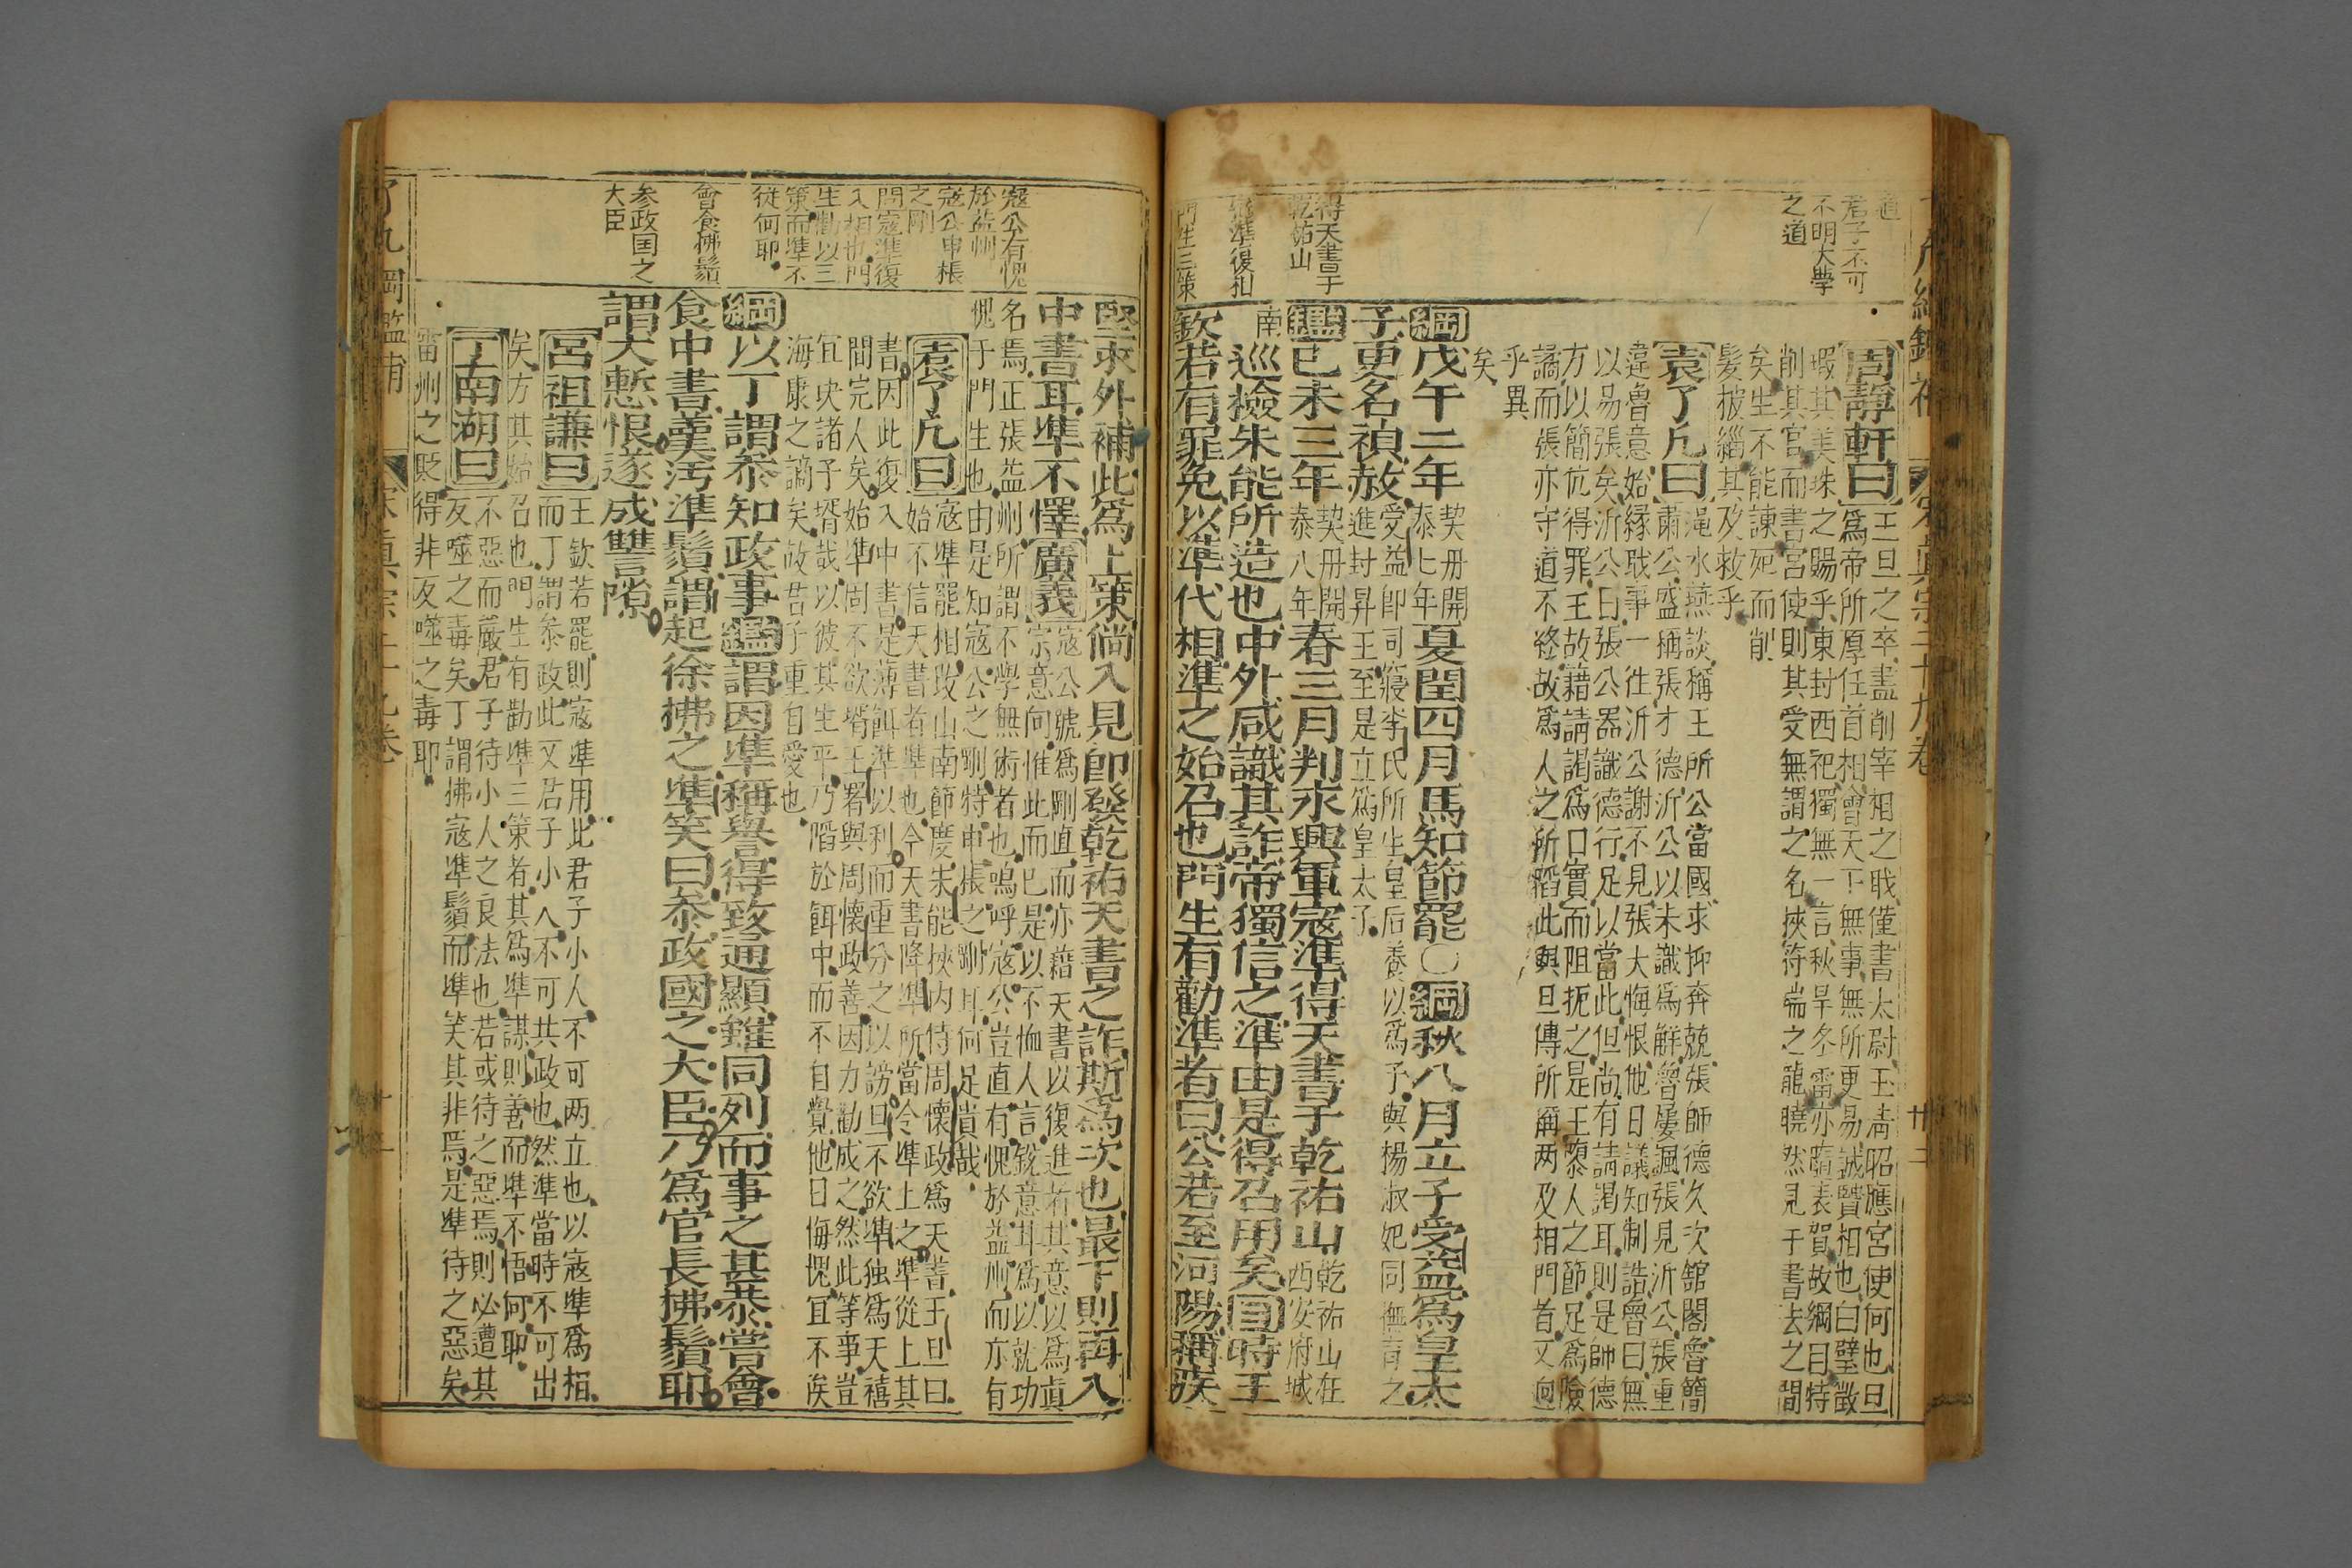 道
君子不可
不明大學
之道
得天書于
乾祐山
張準復相
門生三策
周靜軒曰
王旦之卒盡削宰相之職僅書太尉玉清昭應宮使何也旦
爲帝所厚任首相會天下無事無所更易誠賢相也白璧微
瑕其美珠之賜乎東封西祀獨無一言秋旱冬雷亦隨表賀故綱目特
削其官而書宮使則其受無謂之名挾符瑞之寵曉然見于書法之間
矣生不能諫死而削
髮披緇其及救乎
袁了凡曰
澠水燕談稱王所公當國求抑奔兢張師德久次舘閣魯簡
肅公盛稱張才德沂公以未識爲觧曾屢諷張見沂公張重
違魯意始緣職事一往沂公謝不見張大悔恨他日議知制誥曾曰無
以易張矣沂公曰張公器識德行足以當此但尚有請謁耳則是師德
方以簡伉得罪王故藉請謁爲口實而阻扼之是王隳人之節足爲險
譎而張亦守道不終故爲人之所蹈此與旦傳所稱两及相門首又逈
乎異
矣
綱戊午二年
契丹開
泰七年
夏閏四月馬知節罷〇綱秋八月立子受益爲皇太
子更名禎赦
受益即司寢李氏所生皇后養以爲子與楊淑妃同撫育之
進封昇王至是立爲皇太子
鑑己未三年
契丹開
泰八年
春三月判永興軍寇準得天書于乾祐山
乾祐山在
西安府城
南
巡檢朱能所造也中外咸識其詐帝獨信之準由是得召用矣目時王
欽若有罪免以準代相準之始召也門生有勸準者曰公若至河陽稱疾
堅求外補此爲上策倘入見卽發乾祐天書之詐斯爲次也最下則再入
中書耳準不懌廣義
寇公號爲剛直而亦藉天書以復進析其意以爲眞
宗意向惟此而已是以不恤人言銳意茸爲以就功
名焉正張益州所謂不學無術者也嗚呼寇公豈直有愧於益州而亦有
愧于門生也由是知寇公之剛特申棖之剛耳何足貴哉
袁了凡曰
寇準罷相政山南節度朱能挾内侍周懷政爲天書王旦曰
始不信天書者準也今天書降準所當令準上之準從上其
書因此復入中書是薄餌準以利而重分之以謗旦不欲準独爲天禧
間完人矣始準固不欲壻王署與周懷政善因力勸成之然此等事豈
宜央諸子壻哉以彼其生平乃蹈於餌中而不自覺他日侮愧宜不俟
海康之謫矣故君子重自愛也
綱以丁謂叅知政事鑑謂因準稱譽得致通顯雖同列而事之甚恭嘗會
食中書羹汚準鬚謂起徐拂之準笑曰叅政國之大臣乃爲官長拂鬚耶
謂大慙恨遂成讐隙
呂祖謙曰
王欽若罷則寇準用此君子小人不可两立也以寇準爲相
而丁謂叅政此又君子小人不可共政也然準當時不可出
矣方其始召也門生有勸準三策者其爲準謀則善而準不悟何耶
丁南湖曰
不惡而嚴君子待小人之良法也若或待之惡焉則必遭其
反噬之毒矣丁謂拂寇準鬚而準笑其非焉是準待之惡矣
雷州之貶得非反噬之毒耶
寇公有愧
於益州
寇公申棖
之剛
問寇準復
入相也門
生勸以三
策而準不
從何耶
會食拂鬚
參政国之
大臣
了凡綱鑑補
宋眞宗二十九卷